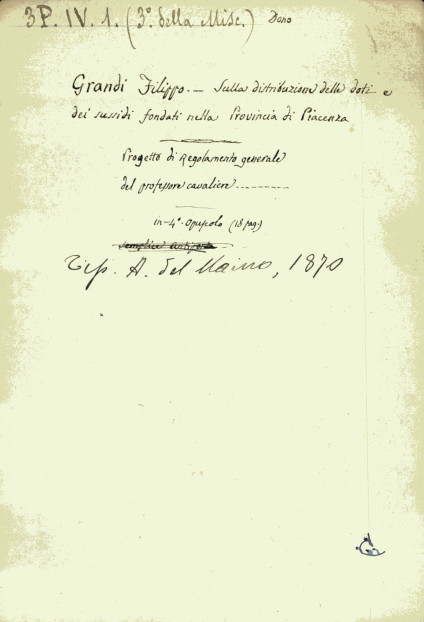 3P. IV. 1. (3º della Misc.) Dono
Grandi Filippo. — Sulla distribuzione delle doti e
dei sussidi fondati nella Provincia di Piacenza
Progetto di Regolamento generale
del professore cavaliere
in-4º. Opuscolo (18 pag.)
semplice antiporta
Tip. A. del Maino, 1870